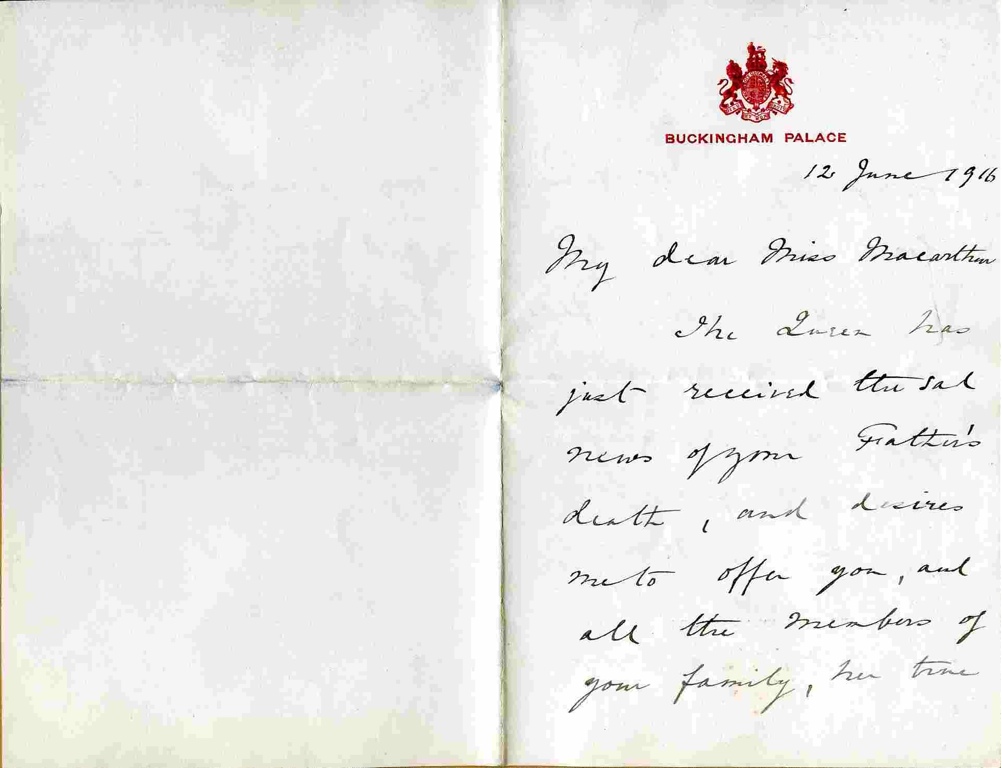 BUCKINGHAM PALACE
12 June 1916
My dear Miss Macarthur
The Queen has
just received the sad
news of your Father's
death, and desires
me to offer you, and
all the members of
your family, her true